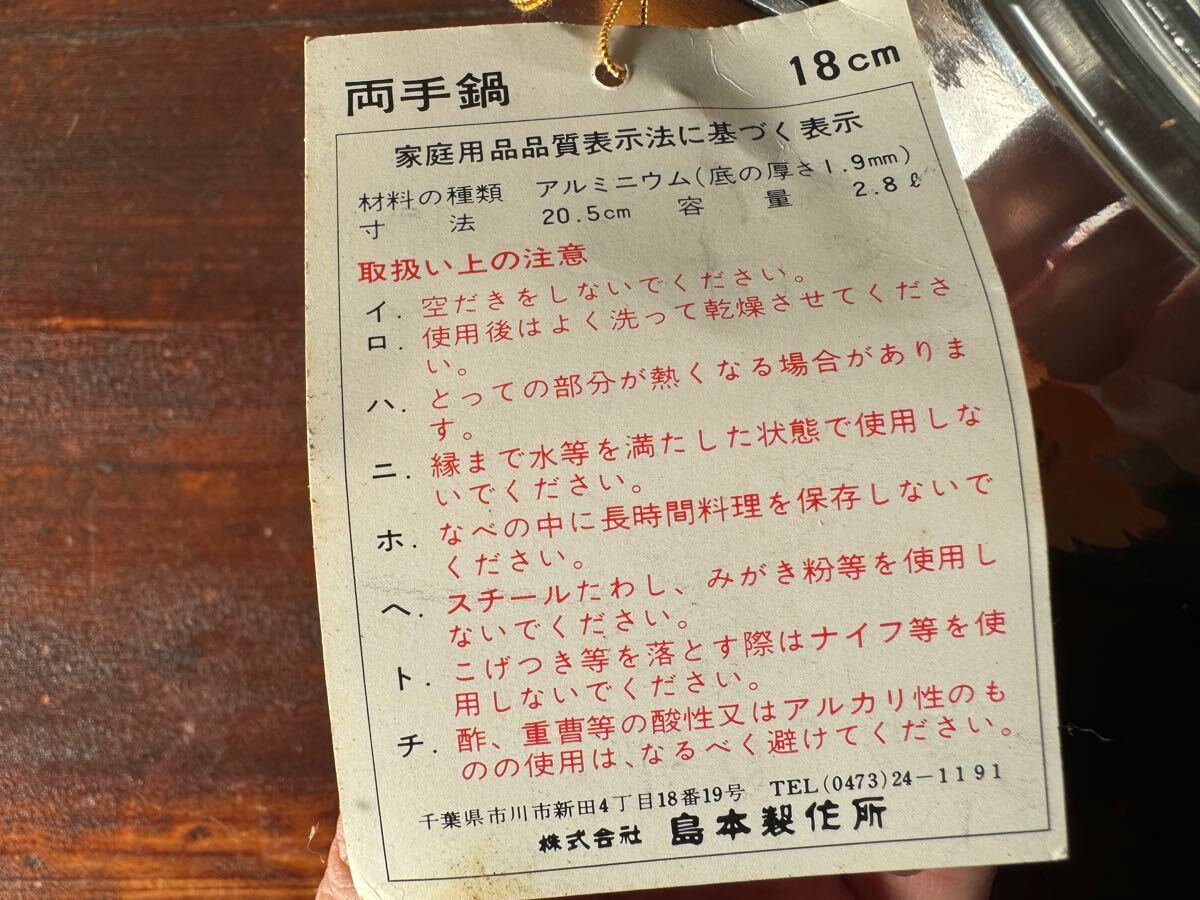 両手鍋 18cm
家庭用品品質表示法に基づく表示
材料の種類 アルミニウム(底の厚さ1.9mm)
寸法 20.5cm 容量 2.8ℓ
取扱い上の注意
イ. 空だきをしないでください。
ロ. 使用後はよく洗って乾燥させてくださ
い。
ハ. とっての部分が熱くなる場合がありま
す。
ニ. 縁まで水等を満たした状態で使用しな
いでください。
ホ. なべの中に長時間料理を保存しないで
ください。
ヘ. スチールたわし、みがき粉等を使用し
ないでください。
ト. こげつき等を落とす際はナイフ等を使
用しないでください。
チ. 酢、重曹等の酸性又はアルカリ性のも
のの使用は、なるべく避けてください。
千葉県市川市新田4丁目18番19号 TEL(0473)24-1191
株式会社 島本製作所